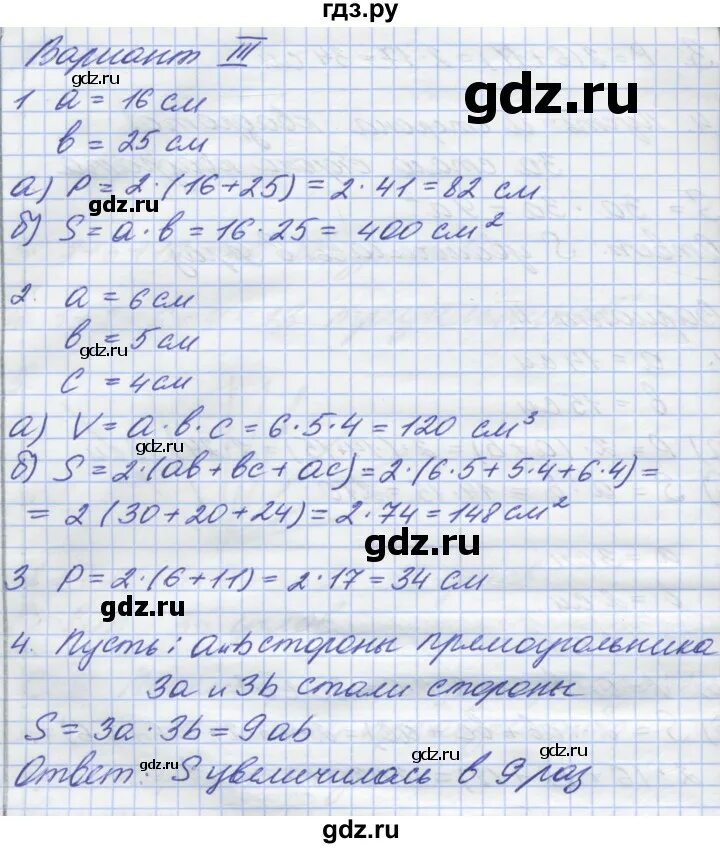 гдз.ру
Вариант III
gdz.ru
1 a = 16 см
gdz.ru
в = 25 см
а) P = 2·(16+25) = 2·41 = 82 см
gdz.ru
б) S = a·в = 16·25 = 400 см²
2. a = 6 см
в = 5 см
gdz.ru
c = 4 см
а) V = a·в·c = 6·5·4 = 120 см³
gdz.ru
б) S = 2·(ab+bc+ac) = 2·(6·5+5·4+6·4) =
= 2(30+20+24) = 2·74 = 148 см²
gdz.ru
3 P = 2·(6+11) = 2·17 = 34 см
gdz.ru
4. Пусть: a и b стороны прямоугольника
3a и 3b стали стороны
S = 3a·3b = 9ab
gdz.ru
gdz.ru
Ответ: S увеличилась в 9 раз
gdz.ru